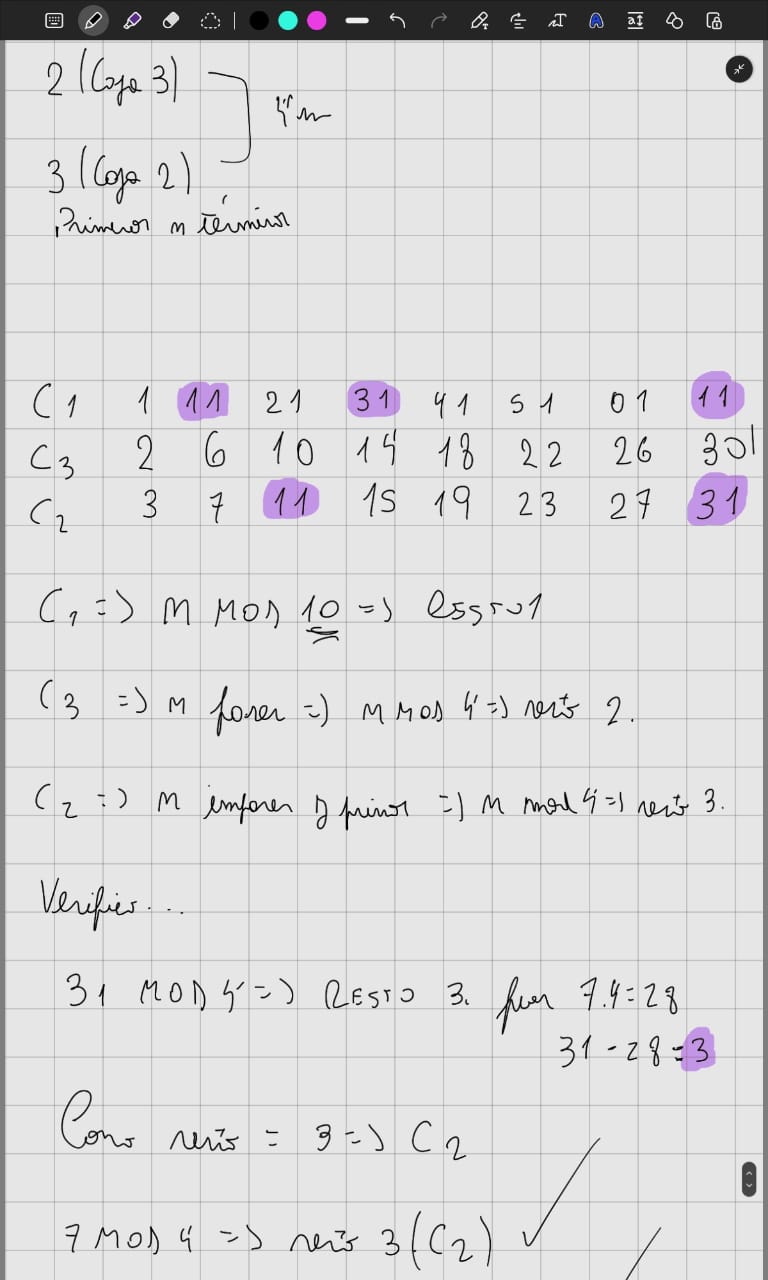 2 (Caja 3)
4n
3 (Caja 2)
Primeros n términos
C1 1 11 21 31 41 51 01 11
C3 2 6 10 14 18 22 26 30
C2 3 7 11 15 19 23 27 31
C1 => M MOD 10 => Resto 1
C3 => M pares => M MOD 4 => resto 2.
C2 => M impares y primos => M mod 4 => resto 3.
31 MOD 4 => RESTO 3. pues 7.4=28
31-28=3
Como resto = 3 => C2
7 MOD 4 => resto 3 (C2) ✓